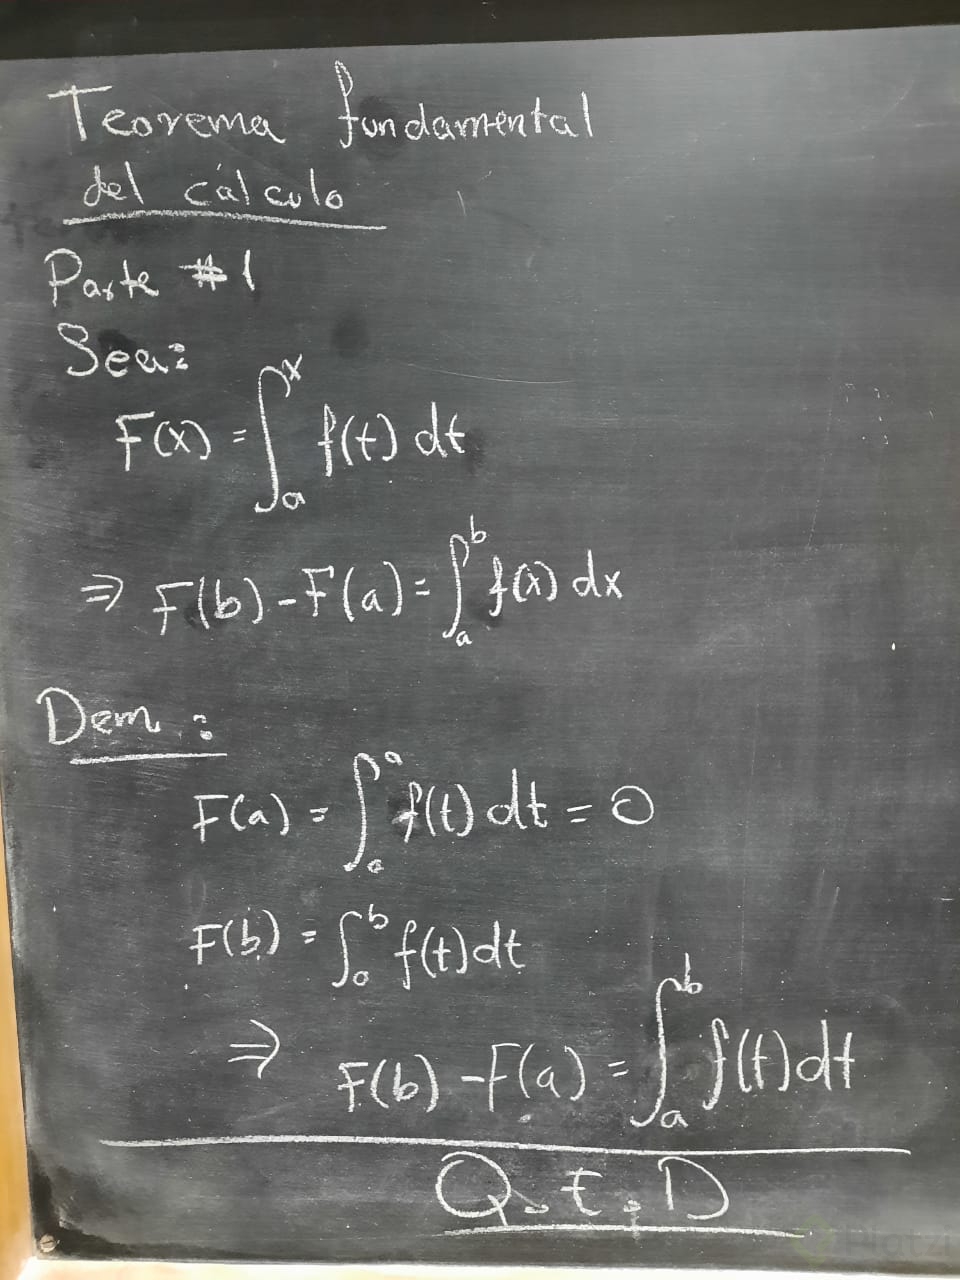 Teorema fundamental
del cálculo
Parte #1
Sea:
F(x) = ∫_a^x f(t) dt
⇒ F(b) - F(a) = ∫_a^b f(x) dx
Dem :
F(a) = ∫_a^a f(t) dt = 0
F(b) = ∫_0^b f(t) dt
⇒ F(b) - F(a) = ∫_a^b f(t) dt
Q.E.D
Platzi